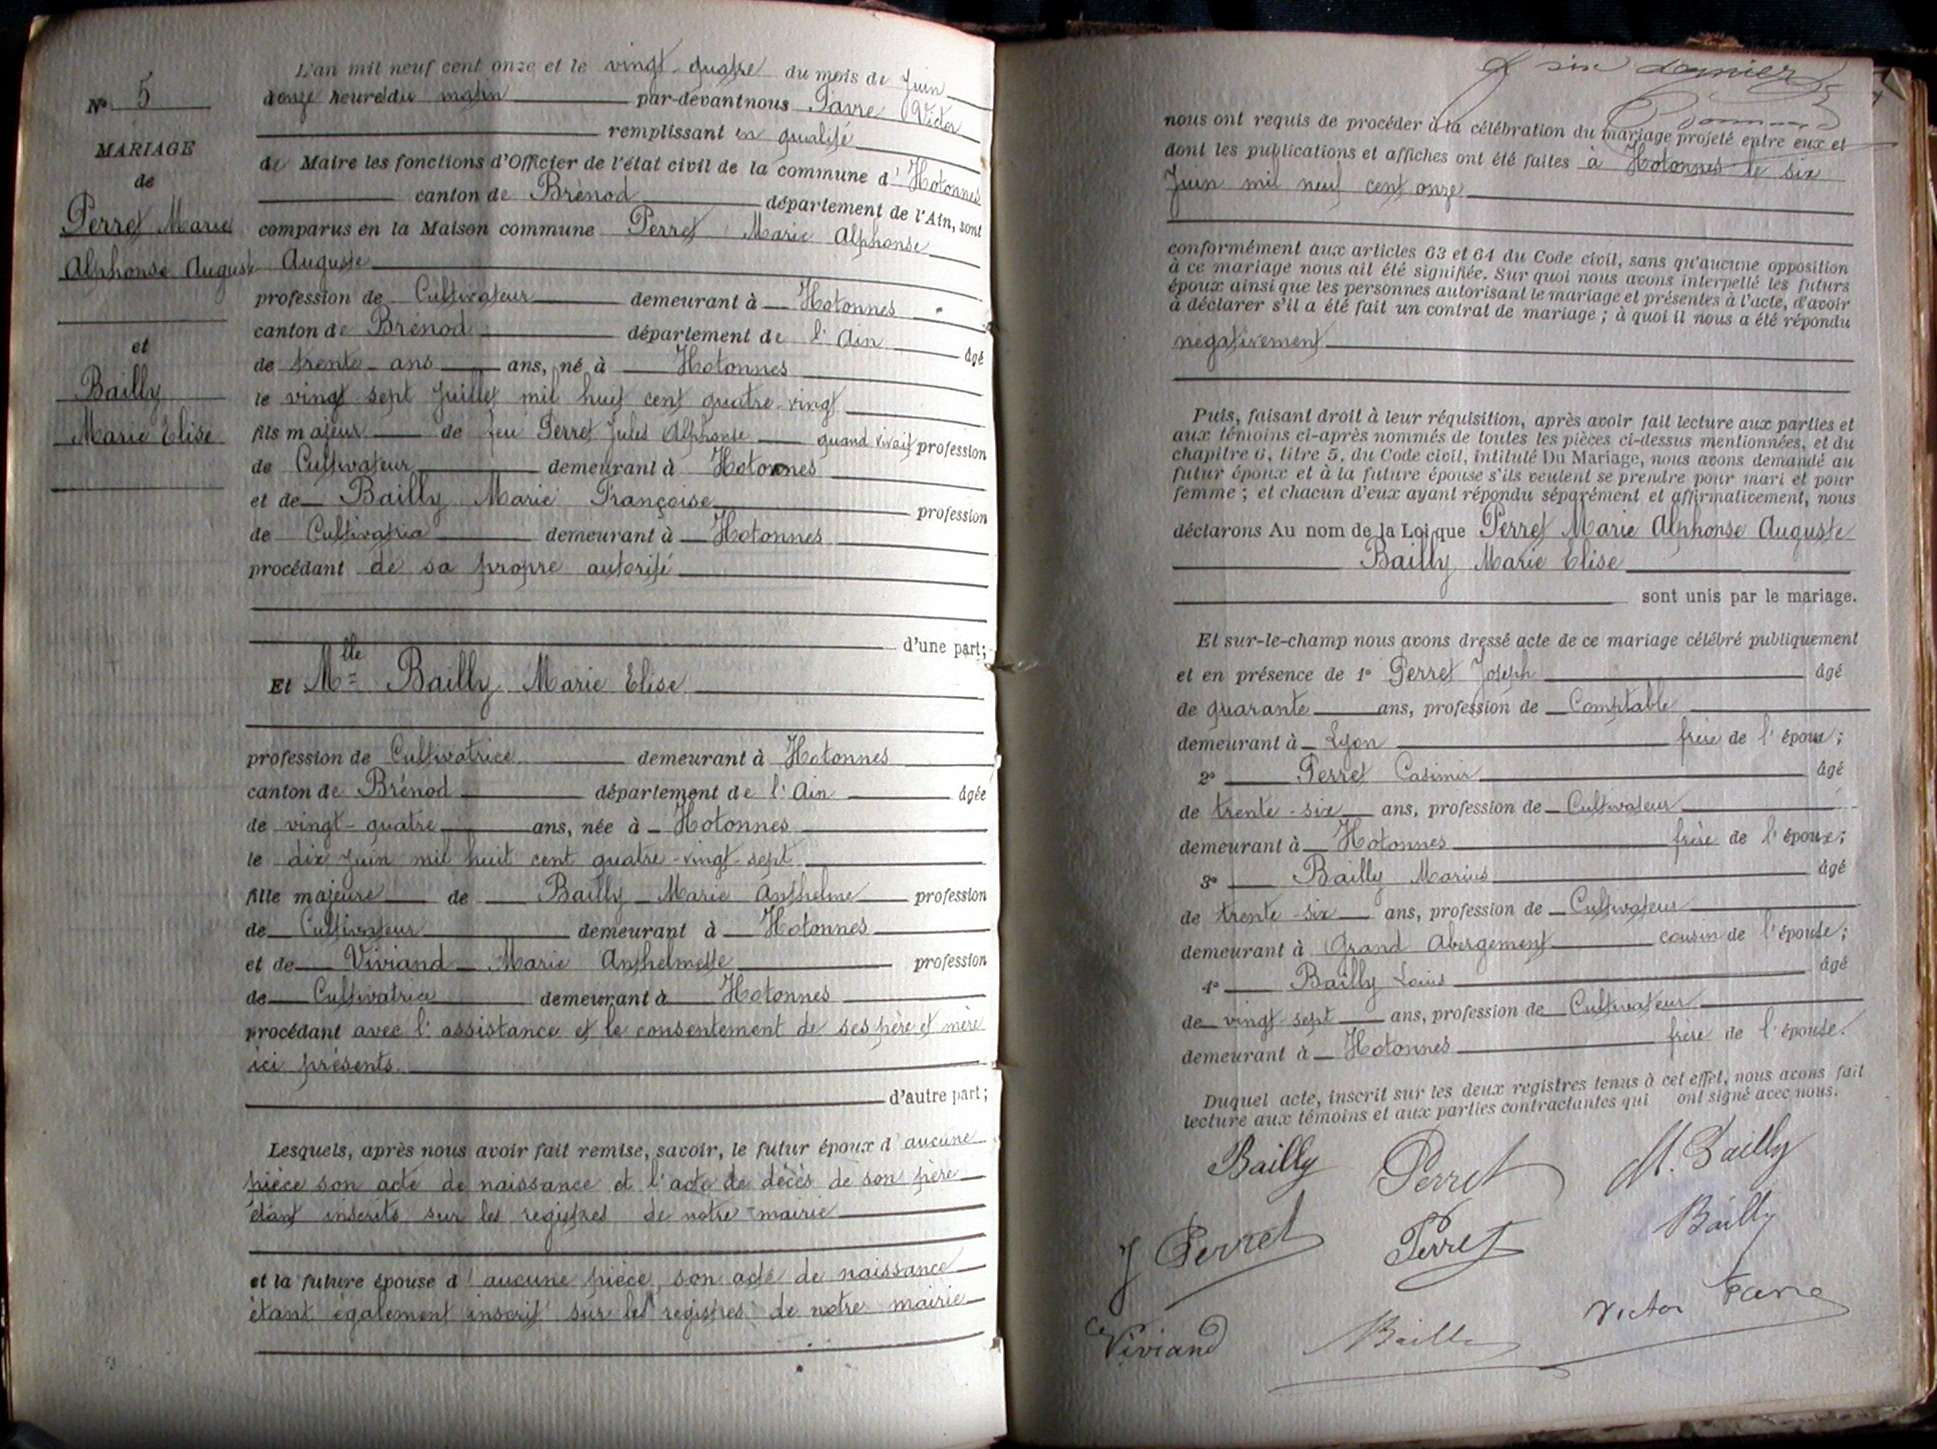 L'an mil neuf cent onze et le vingt-quatre du mois de Juin
N° 5
onze heures du matin par-devant nous Favre Victor
remplissant en qualité
MARIAGE
de Maire les fonctions d'Officier de l'état civil de la commune d'Hotonnes
de
canton de Brénod département de l'Ain, sont
Perret Marie
comparus en la Maison commune Perret Marie Alphonse
Alphonse Auguste
Auguste
profession de Cultivateur demeurant à Hotonnes
canton de Brénod département de l'Ain âgé
et
de trente ans ans, né à Hotonnes
Bailly
le vingt sept Juillet mil huit cent quatre-vingt
Marie Elise
fils majeur de feu Perret Jules Alphonse quand vivait profession
de Cultivateur demeurant à Hotonnes
et de Bailly Marie Françoise profession
de Cultivatrice demeurant à Hotonnes
procédant de sa propre autorité
d'une part;
Et Mlle Bailly Marie Elise
profession de Cultivatrice demeurant à Hotonnes
canton de Brénod département de l'Ain âgée
de vingt-quatre ans, née à Hotonnes
le dix Juin mil huit cent quatre-vingt-sept
fille majeure de Bailly Marie Anthelme profession
de Cultivateur demeurant à Hotonnes
et de Viviand Marie Anthelmette profession
de Cultivatrice demeurant à Hotonnes
procédant avec l'assistance et le consentement de ses père et mère
ici présents
d'autre part;
Lesquels, après nous avoir fait remise, savoir, le futur époux d'aucune
pièce son acte de naissance et l'acte de décès de son père
étant inscrits sur les registres de notre mairie
et la future épouse d'aucune pièce, son acte de naissance
étant également inscrit sur les registres de notre mairie
six dernier
nous ont requis de procéder à la célébration du mariage projeté entre eux et
dont les publications et affiches ont été faites à Hotonnes le six
Juin mil neuf cent onze
conformément aux articles 63 et 64 du Code civil, sans qu'aucune opposition
à ce mariage nous ait été signifiée. Sur quoi nous avons interpellé les futurs
époux ainsi que les personnes autorisant le mariage et présentes à l'acte, d'avoir
à déclarer s'il a été fait un contrat de mariage; à quoi il nous a été répondu
négativement
Puis, faisant droit à leur réquisition, après avoir fait lecture aux parties et
aux témoins ci-après nommés de toutes les pièces ci-dessus mentionnées, et du
chapitre 6, titre 5, du Code civil, intitulé Du Mariage, nous avons demandé au
futur époux et à la future épouse s'ils veulent se prendre pour mari et pour
femme; et chacun d'eux ayant répondu séparément et affirmativement, nous
déclarons Au nom de la Loi que Perret Marie Alphonse Auguste
Bailly Marie Elise
sont unis par le mariage.
Et sur-le-champ nous avons dressé acte de ce mariage célébré publiquement
et en présence de 1° Perret Joseph âgé
de quarante ans, profession de Comptable
demeurant à Lyon frère de l'époux;
2° Perret Casimir âgé
de trente-six ans, profession de Cultivateur
demeurant à Hotonnes frère de l'époux;
3° Bailly Marius âgé
de trente-six ans, profession de Cultivateur
demeurant à Grand Abergement cousin de l'épouse;
4° Bailly Louis âgé
de vingt-sept ans, profession de Cultivateur
demeurant à Hotonnes frère de l'épouse.
Duquel acte, inscrit sur les deux registres tenus à cet effet, nous avons fait
lecture aux témoins et aux parties contractantes qui ont signé avec nous.
Bailly Perret M. Bailly
J Perret Perret Bailly
Viviand Bailly Victor Favre